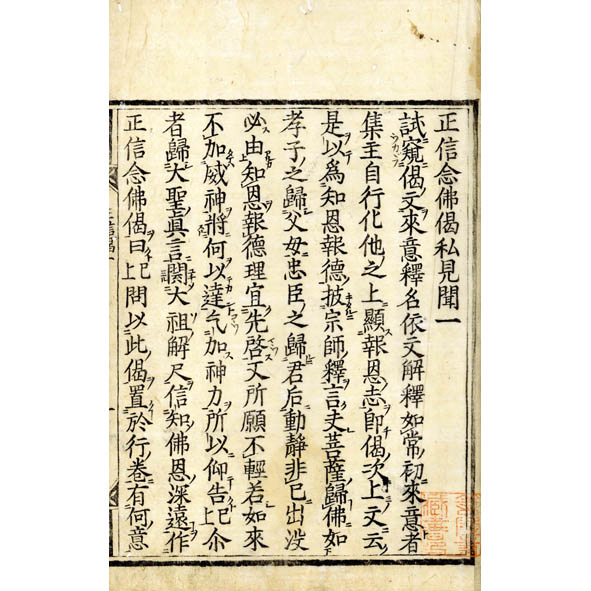 正信念佛偈私見聞一
試窺偈文來意釋名依文解釋如常初來意者
集主自行化他之上顯報恩志即偈次上文云
是以爲知恩報德披宗師釋言夫菩薩歸佛如
孝子之歸父母忠臣之歸君后動靜非已出没
必由知恩報德理宜先啓又所願不輕若如來
不加威神將何以達乞加神力所以仰告已上尒
者歸大聖眞言閱大祖解尺信知佛恩深遠作
正信念佛偈曰已上問以此偈置於行卷有何意